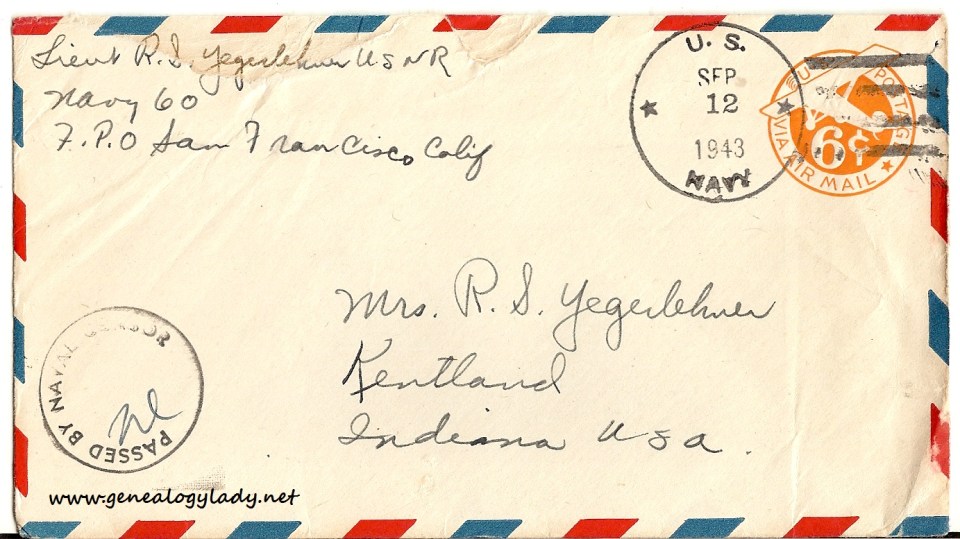 Lieut R. S. Yegerlehner USNR
Navy 60
F.P.O San Francisco Calif
U. S.
SEP
12
1943
NAVY
U POSTAG
6¢
VIA AIR MAIL
Mrs. R. S. Yegerlehner
Kentland
Indiana USA.
PASSED BY NAVAL CENSOR
www.genealogylady.net